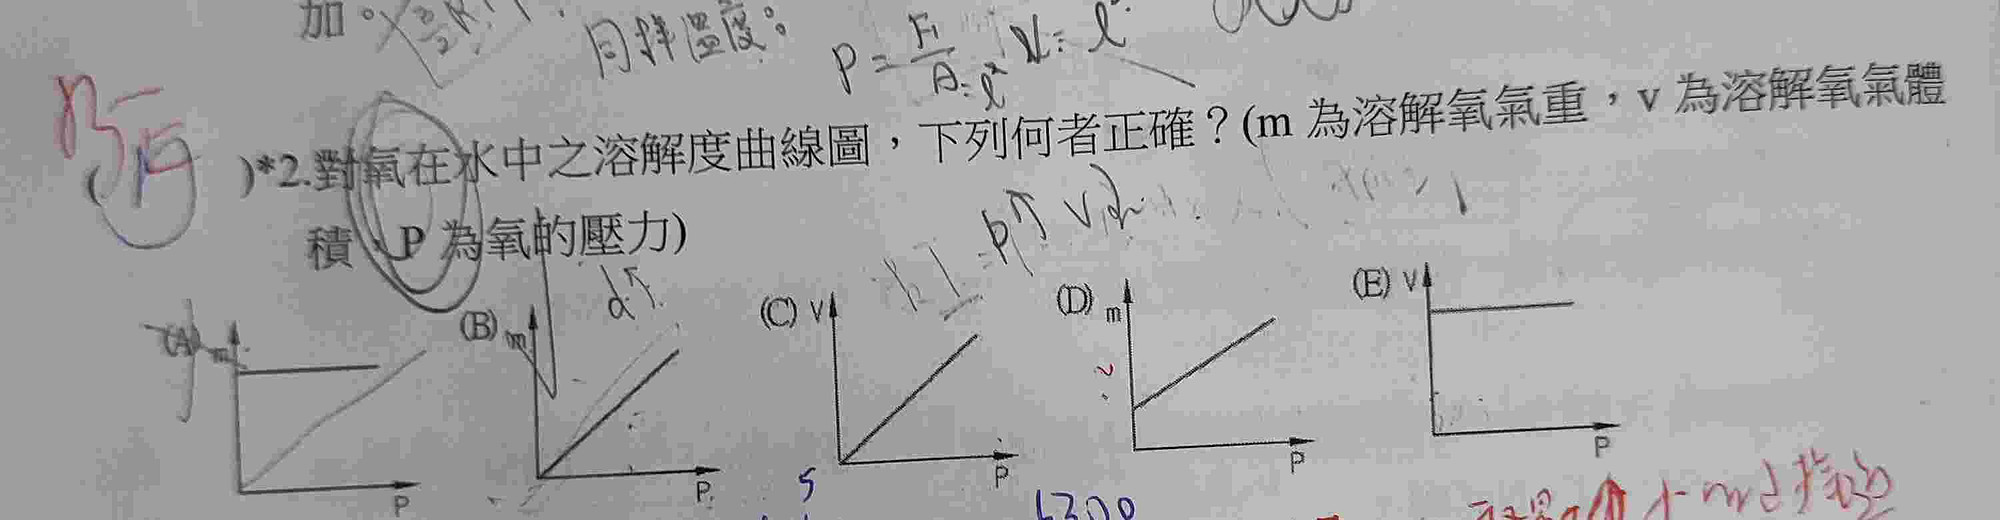 加。
同樣溫度。
P = F₁/A = l² V = l³
BE
( )*2.對氧在水中之溶解度曲線圖,下列何者正確?(m 為溶解氧氣重,v 為溶解氧氣體
積、P 為氧的壓力)
P↑ V
d↑
(A) m P
(B) m P
(C) V P
(D) m P
(E) V P
5
6200